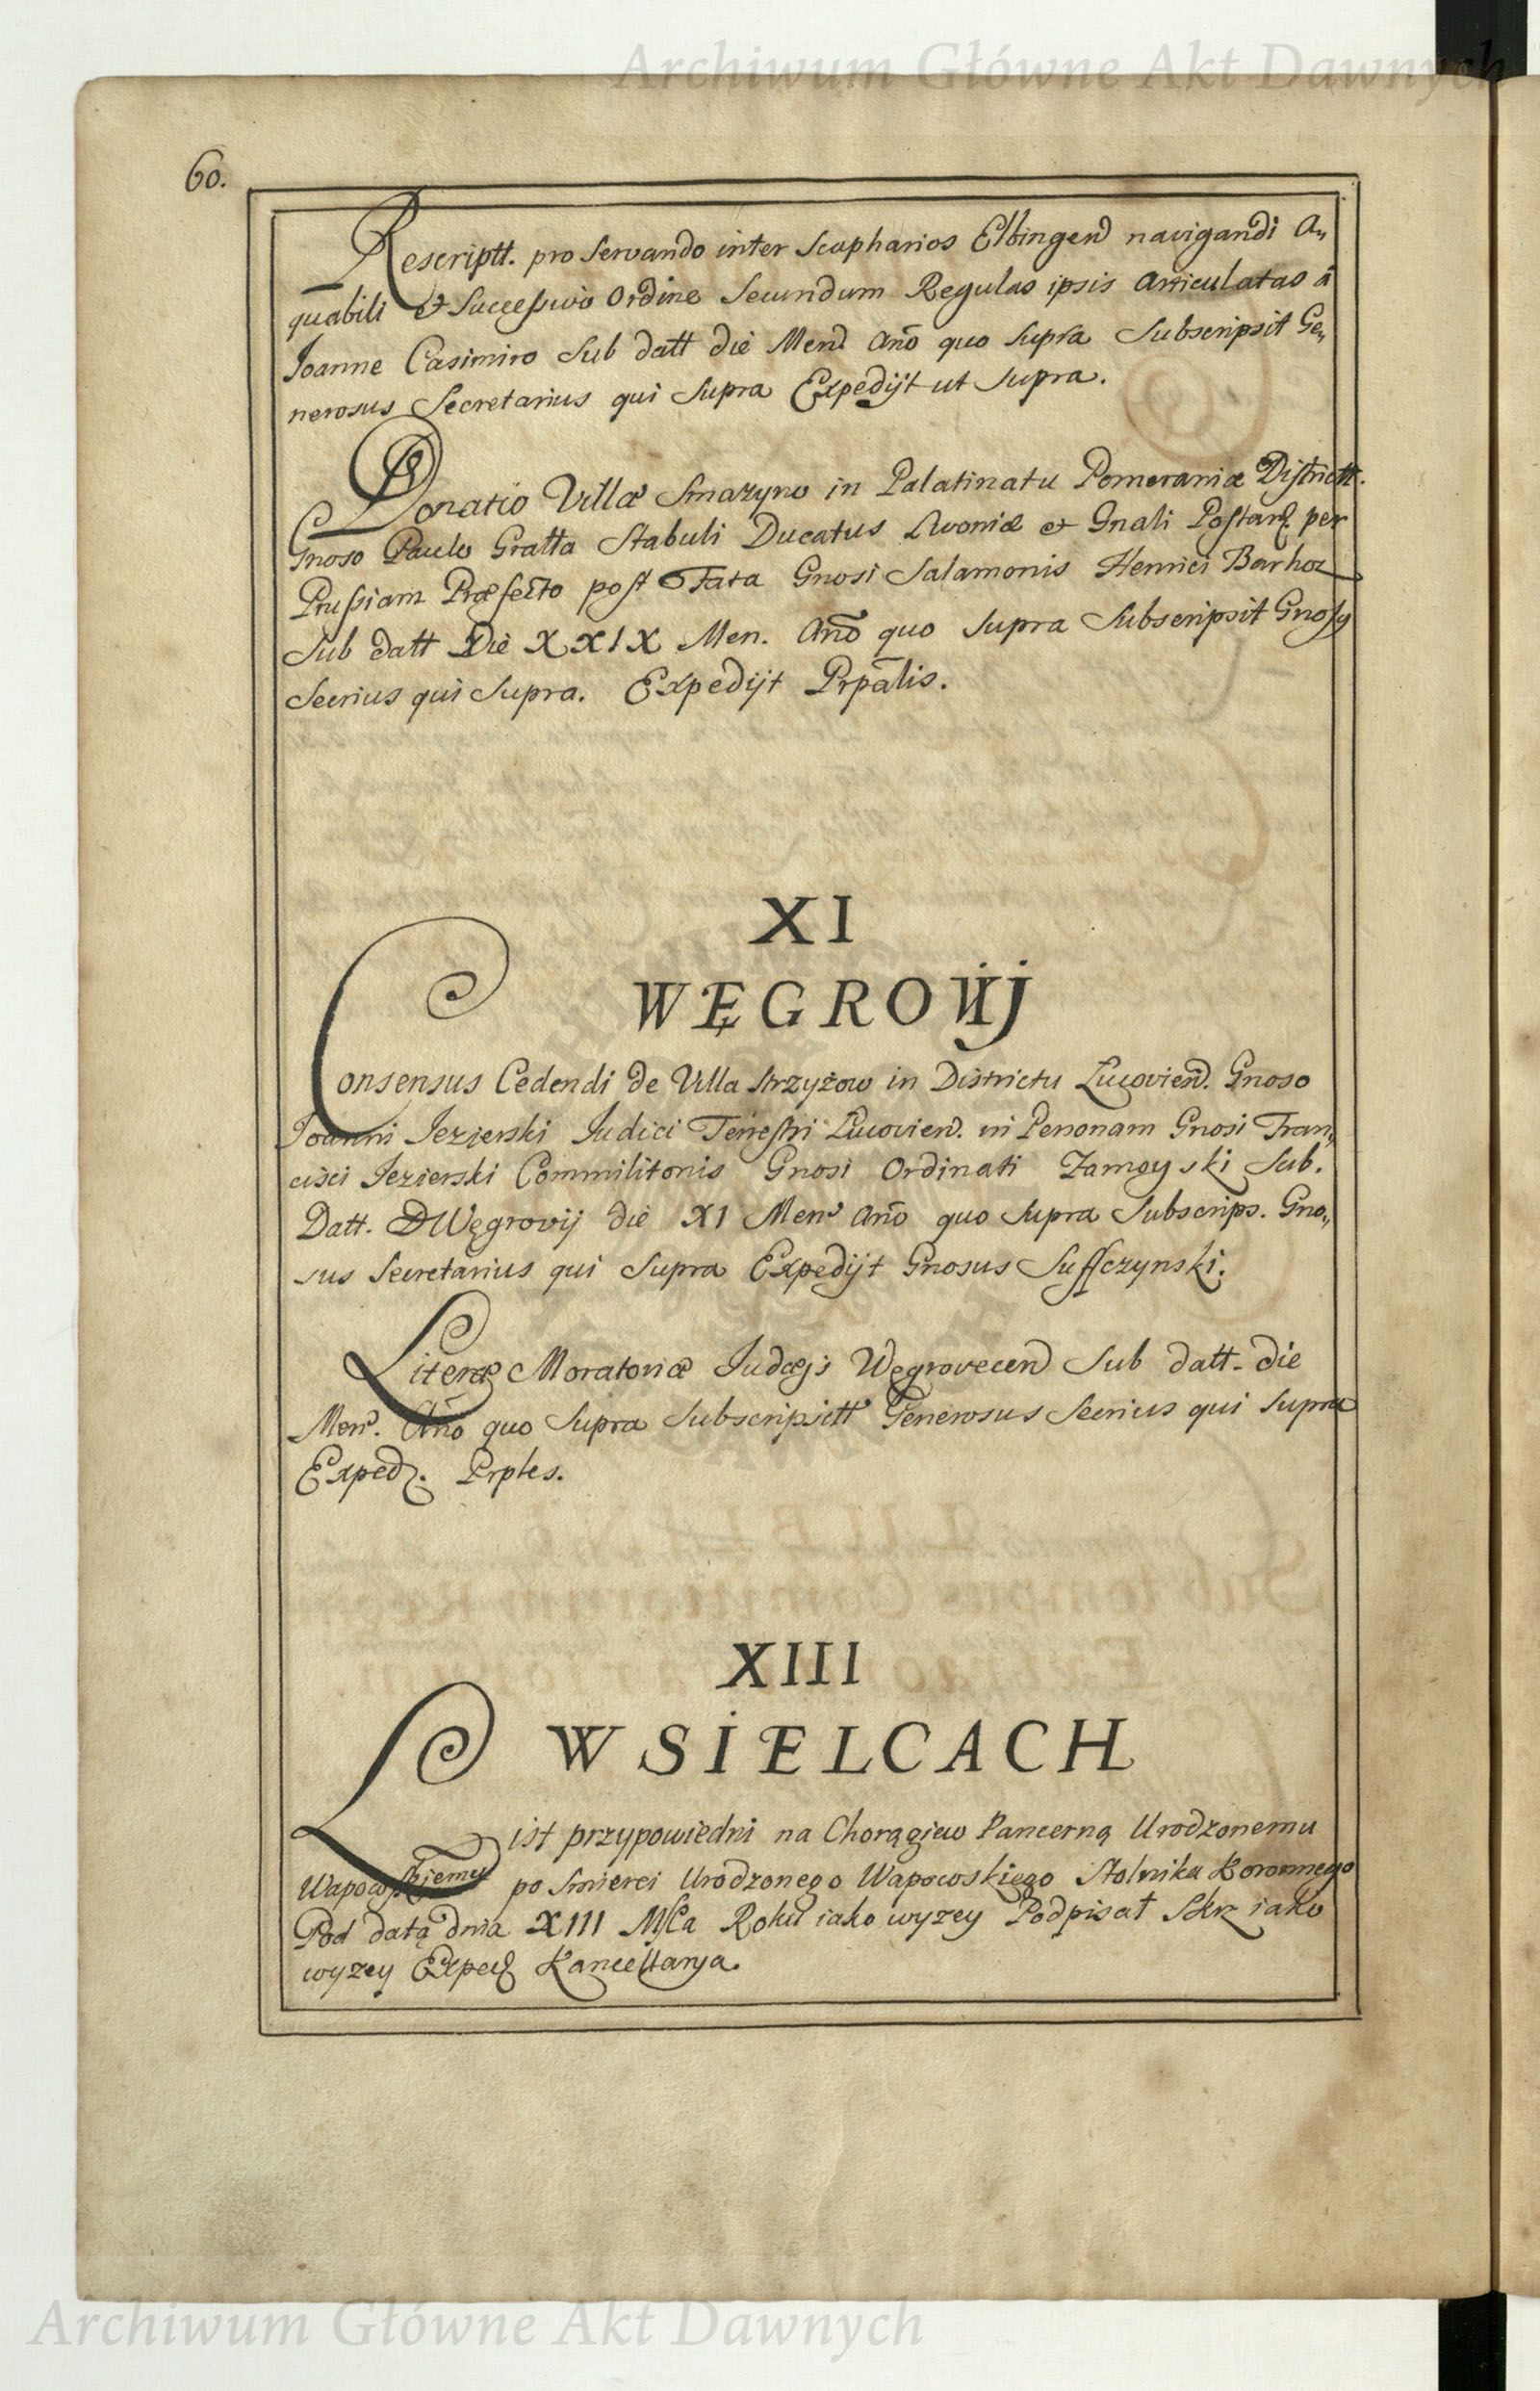 Archiwum Główne Akt Dawnych
60.
Rescriptt. pro servando inter scapharios Elbingens navigandi A„
quabili et Successivo Ordine Secundum Regulas ipsis articulatas á
Joanne Casimiro Sub datt die Mens Año quo Supra Subscripsit Ge„
nerosus Secretarius qui Supra Expedijt ut Supra.
Donatio Villæ Smazyno in Palatinatu Pomeraniæ Districtt.
Gnoso Paulo Gratta Stabuli Ducatus Livoniæ et Gnali Postarũ per
Prussiam Præfecto post Fata Gnosi Salamonis Henrici Barhoz
Sub datt Die XXIX Men. Año quo Supra Subscripsit Gnosy
Secrius qui Supra. Expedijt Prpãlis.
XI
WĘGROWIJ
Consensus Cedendi de Villa Strzyżow in Districtu Lucovien. Gnoso
Joanni Jezierski Judici Terrestri Lucovien. in Personam Gnosi Fran„
cisci Jezierski Commilitonis Gnosi Ordinati Zamoyski Sub.
Datt. Węgrovij die XI Mens Año quo Supra Subscrips. Gno„
sus Secretarius qui Supra Expedijt Gnosus Suffczynski.
Literæ Moratoriæ Judæjs Węgrovecen Sub datt. die
Mens. Año quo Supra Subscripsitt Generosus Secrius qui Supra
Exped. Prples.
XIII
W SIELCACH
List przypowiedni na Chorągiew Pancerną Urodzonemu
Wapowskiemu po Smierci Urodzonego Wapowskiego Stolnika Koronnego
Pod datą dnia XIII Msca Roku iako wyzey Podpisał Skr iako
wyzey Exped Kancellarya.
Archiwum Główne Akt Dawnych